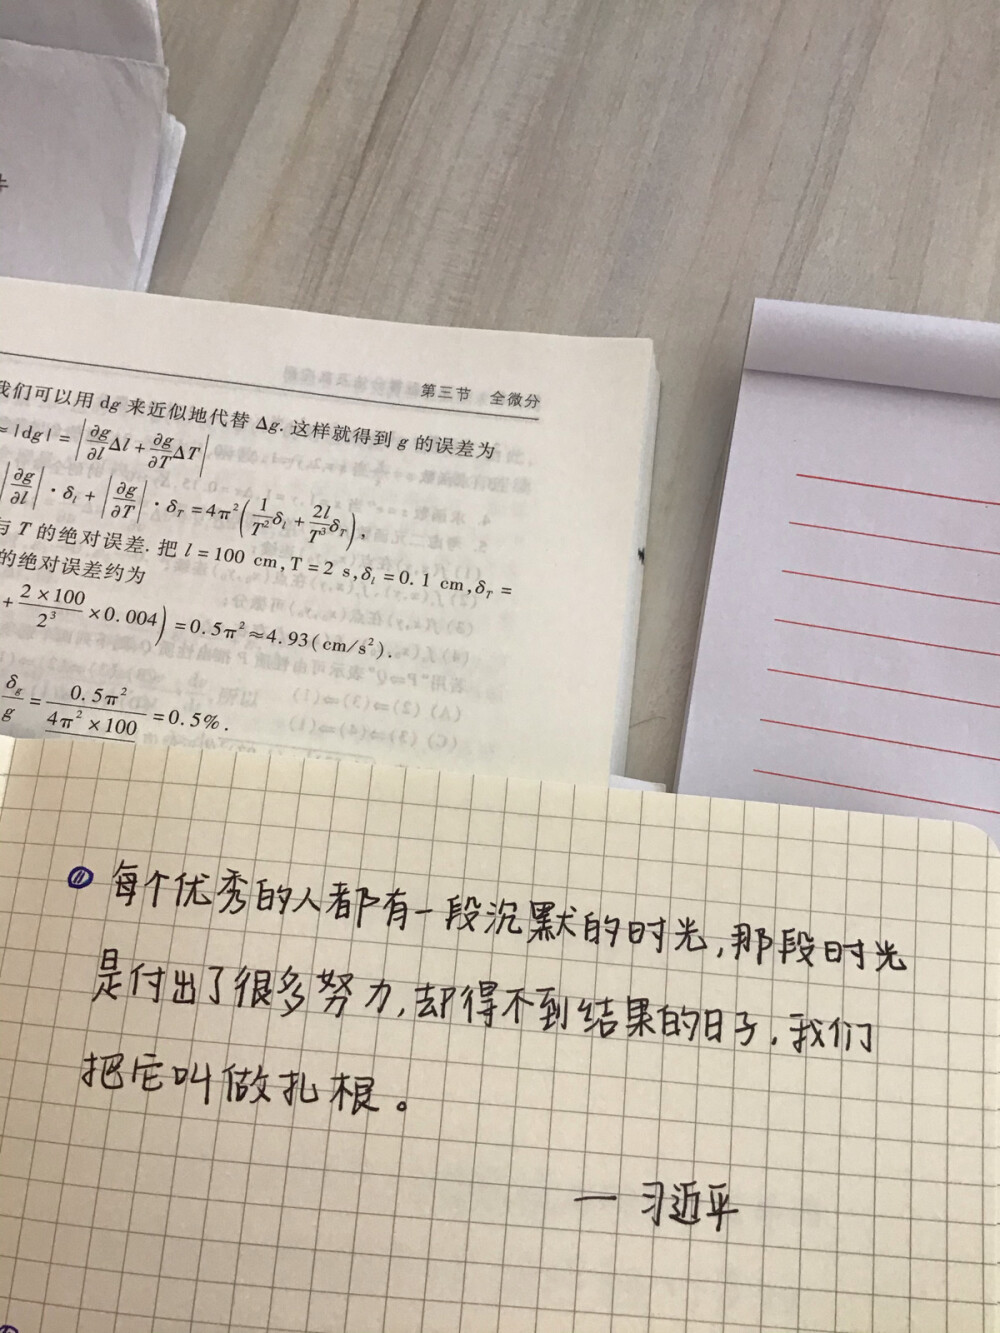 第三节 全微分
我们可以用 dg 来近似地代替 Δg. 这样就得到 g 的误差为
≈|dg| = |∂g/∂l Δl + ∂g/∂T ΔT|
|∂g/∂l| · δ_l + |∂g/∂T| · δ_T = 4π²(1/T² δ_l + 2l/T³ δ_T),
与 T 的绝对误差. 把 l = 100 cm, T = 2 s, δ_l = 0.1 cm, δ_T =
的绝对误差约为
+ 2×100/2³ ×0.004) = 0.5π² ≈ 4.93(cm/s²).
δ_g/g = 0.5π²/4π²×100 = 0.5%.
每个优秀的人都有一段沉默的时光,那段时光
是付出了很多努力,却得不到结果的日子.我们
把它叫做扎根。
— 习近平